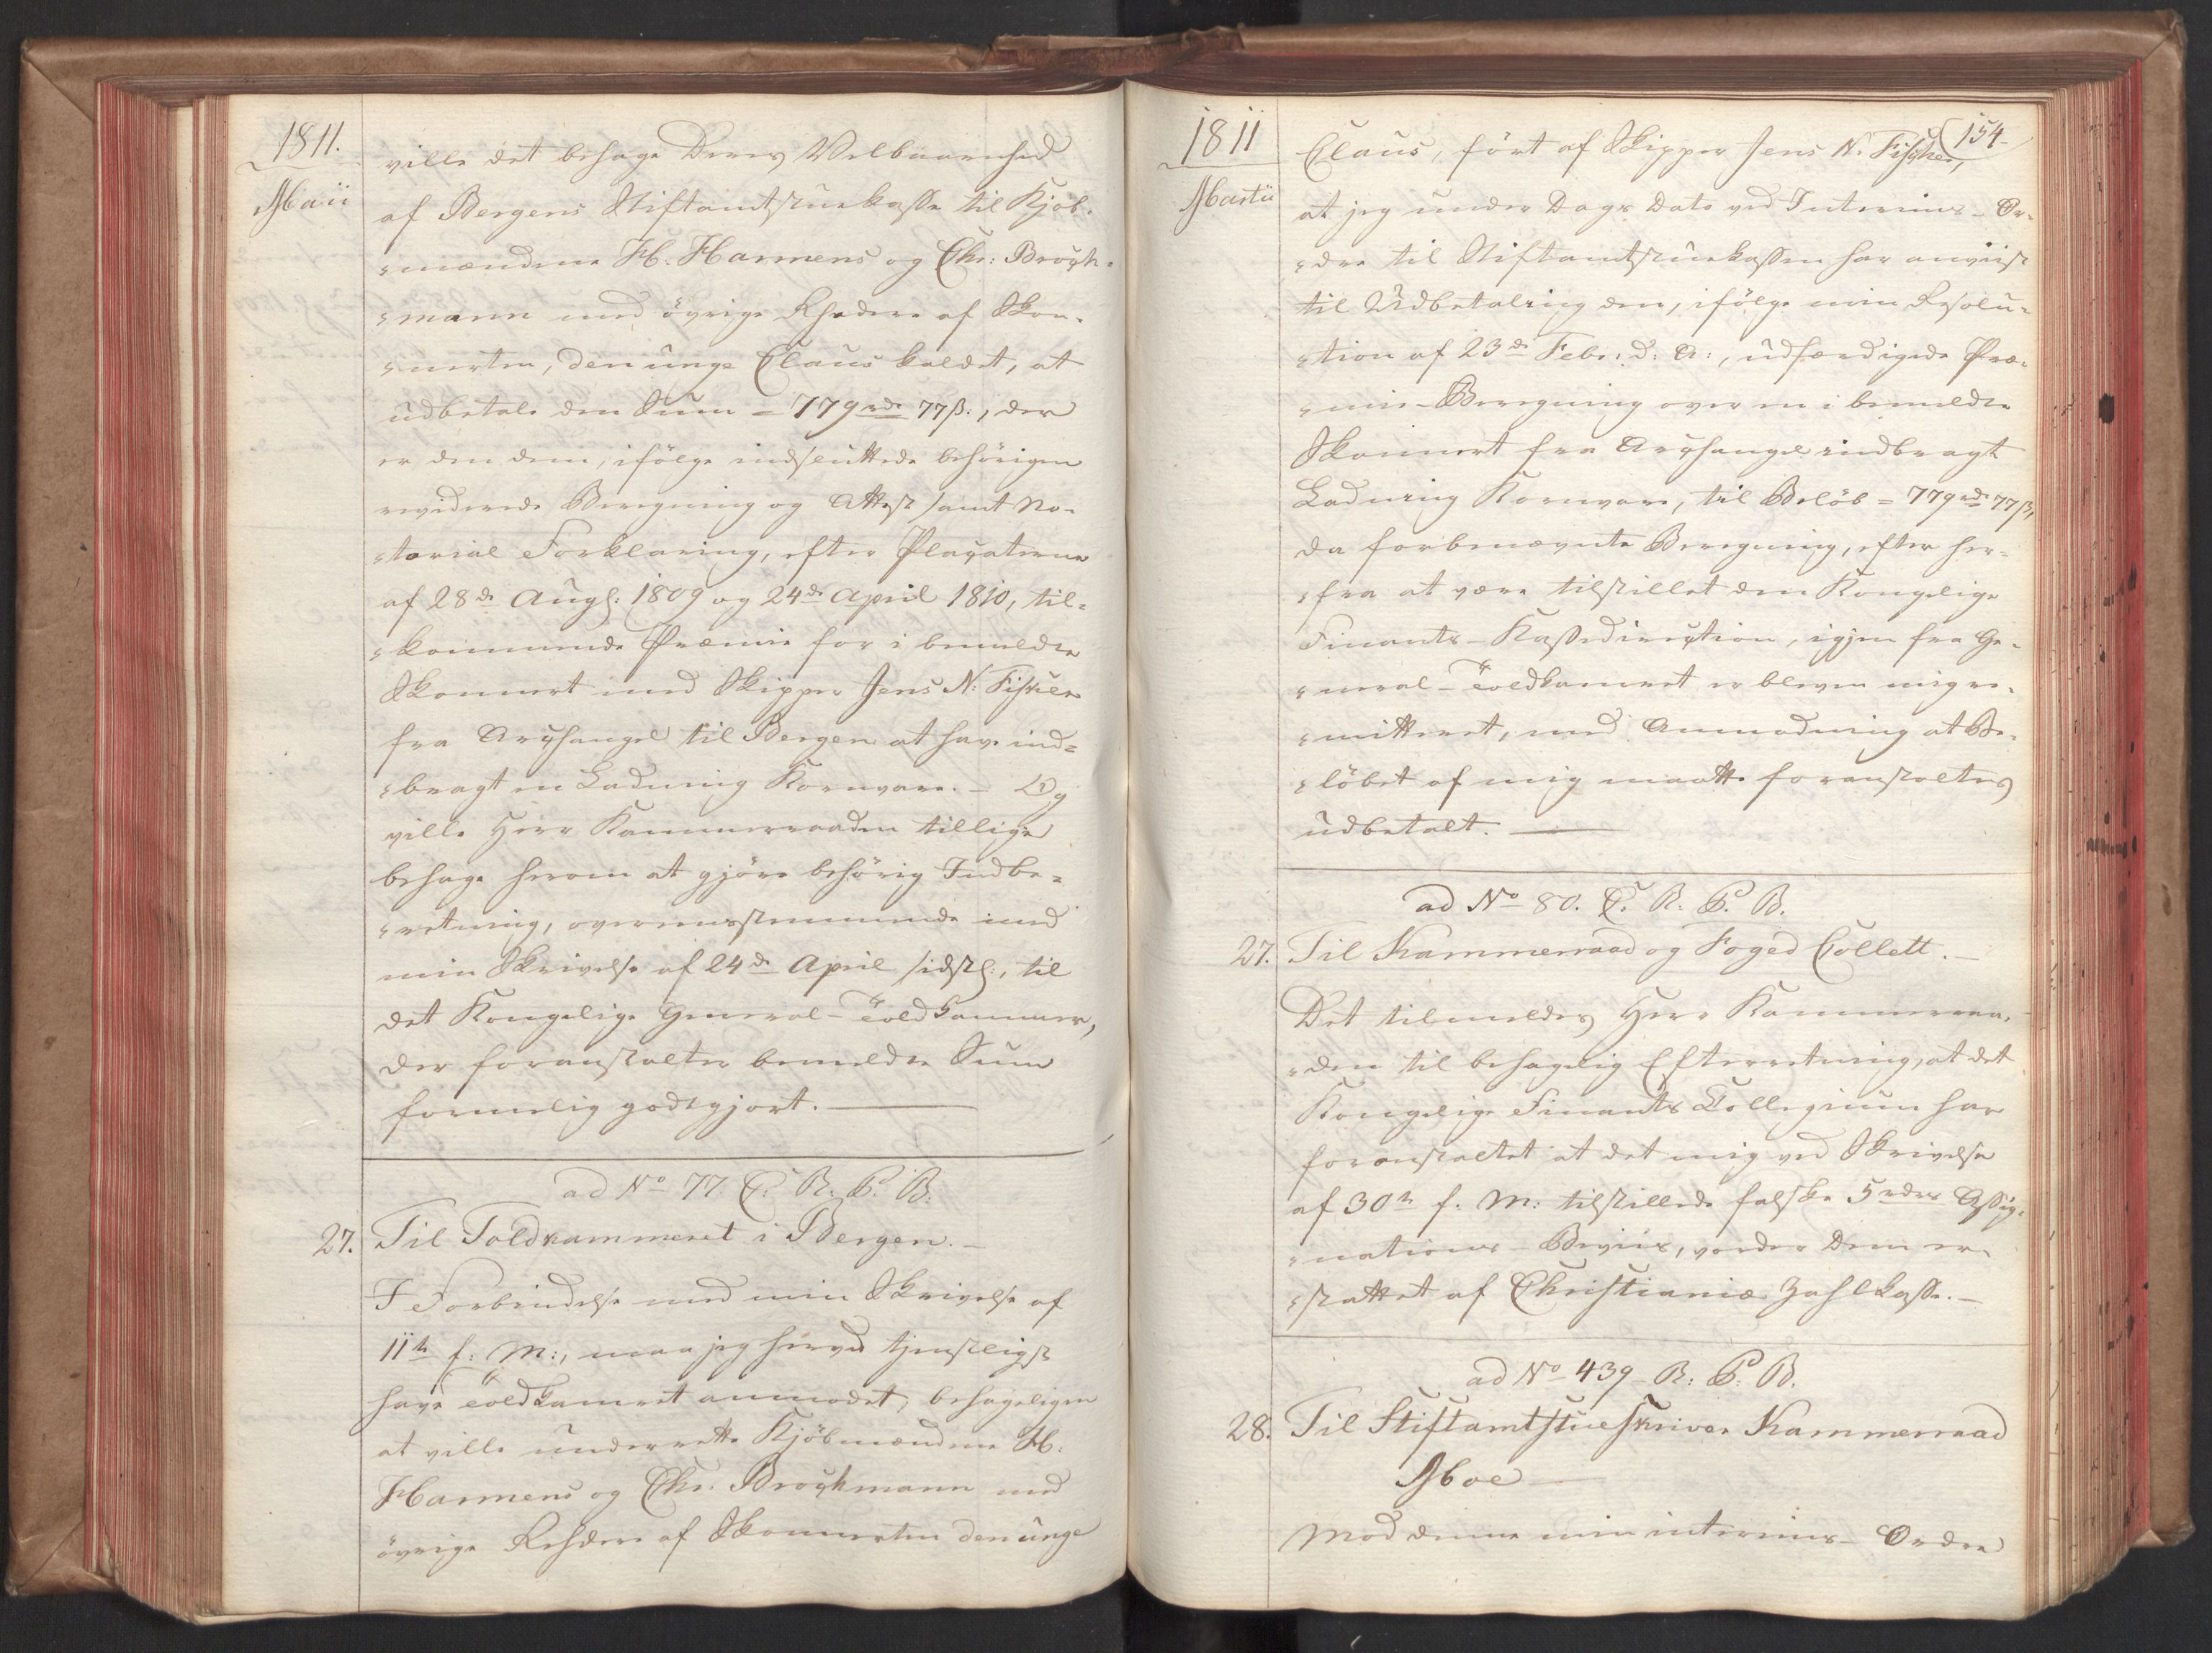 1811.
Maii
ville det behage Deres Velbaarenhed
af Bergens Stiftamtstuekasse til Kjöb-
mændene H. Harmens og Chr: Brock-
mann med övrige Rhedere af Skon-
nerten, den unge Claus kaldet, at
udbetale den Sum = 779 rdr 77 ß., der
er den dem, ifölge indsluttede behörigen
reviderede Beregning og Attest samt No-
tarial Forklaring, efter Placaterne
af 28de Augs: 1809 og 24de April 1810, til-
kommende Præmie for i bemeldte
Skonnert med Skipper Jens N: Fischer
fra Archangel til Bergen at have ind-
bragt en Ladning Kornvare. - Og
ville Herr Kammerraaden tillige
behage herom at gjöre behörig Indbe-
retning, overensstemmende med
min Skrivelse af 24de April sidstl:, til
det Kongelige General-Toldkammer,
der foranstalter bemeldte Sum
formelig godtgjort.
ad No 77 C: R: P: B:
27. Til Toldkammeret i Bergen. -
I Forbindelse med min Skrivelse af
11te f: M:, maa jeg herved tjenstligst
have Toldkamret anmodet, behageligen
at ville underrette Kjöbmændene H:
Harmens og Chr: Brockmann med
övrige Rehdere af Skonnerten den unge
1811
Martii
154
Claus, fört af Skipper Jens N. Fischer,
at jeg under Dags Dato ved Interims-Or-
dre til Stiftamtstuekassen har anviist
til Udbetaling den, ifölge min Resolu-
tion af 23de Febr: d: A:, udfærdigede Præ-
mie-Beregning over en i bemeldte
Skonnert fra Archangel indbragt
Ladning Kornvare, til Belöb = 779 rdr 77 ß,
da forbenævnte Beregning, efter her-
fra at være tilstillet den Kongelige
Finants-Kassedirection, igjen fra Ge-
neral-Toldkamret er bleven mig re-
mitteret, med Anmodning at Be-
löbet af mig maatte foranstaltes
udbetalt.
ad No 80. C. R: P. B.
27. Til Kammerraad og Foged Collett. -
Det tilmeldes Herr Kammerraa-
den til behagelig Efterretning, at det
Kongelige Finants Collegium har
foranstaltet at det mig ved Skrivelse
af 30te f: M: tilstillede falske 5 rdrs Assig-
nations-Beviis, vorder Dem er-
stattet af Christianiæ Zahlkasse. -
ad No 439 - R: P: B.
28. Til Stiftamtstueskriver Kammerraad
Moe
Mod denne min interims-Ordre